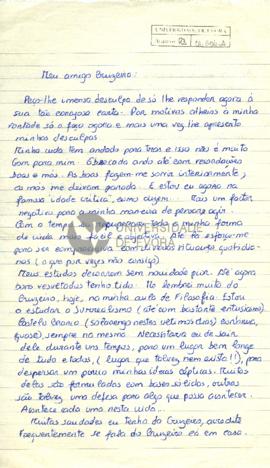 UNIVERSIDADE DE ÉVORA
Meu amigo Cruzeiro:
Peço-lhe imensa desculpa de só lhe responder agora à
sua tão corajosa carta. Por motivos alheios à minha
vontade só o faço agora e mais uma vez lhe apresento
minhas desculpas
Minha vida tem andado para trás e isso não é muito
bom para mim. Obcecado ando até com recordações
boas e más. As boas fazem-me sorrir interiormente,
as más me deixam parado. E estou eu agora na
famosa idade crítica, como dizem. Mais um factor
negativo para a minha maneira de pensar e agir.
Com o tempo a minha forma
de vida até me esforço
para ser com
UNIVERSIDADE
DE ÉVORA
nos (o que por vezes não consigo)
Meus estudos decorrem sem novidade pior. Até agora
bons resultados tenho tido. Me lembrei muito do
Cruzeiro, hoje, na minha aula de Filosofia. Estou
a estudar o Surrealismo (até com bastante entusiasmo)
Castelo Branco continua,
quase, sempre na mesma. Necessitava eu de sair
dele durante uns tempos, para um lugar bem longe
de tudo e todos, (lugar que talvez nem exista!!), para
dispersar um pouco minhas ideias cépticas. Muitas
delas são formuladas com bases sólidas, outras
são talvez, uma defesa para algo que possa acontecer.
Acontece cada uma nesta vida...
Muitas saudades eu tenho do Cruzeiro, acredite
Frequentemente se fala do Cruzeiro cá em casa.